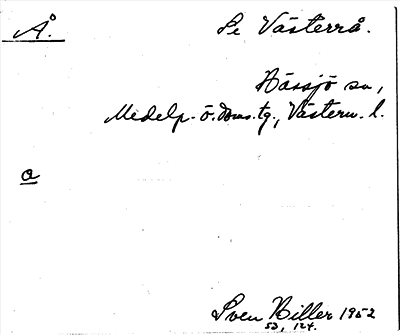 Å. Se Västerrå.
Hässjö sn,
Medelp. ö. doms.tg., Västern. l.
a
Sven Biller 1952
53, 124.